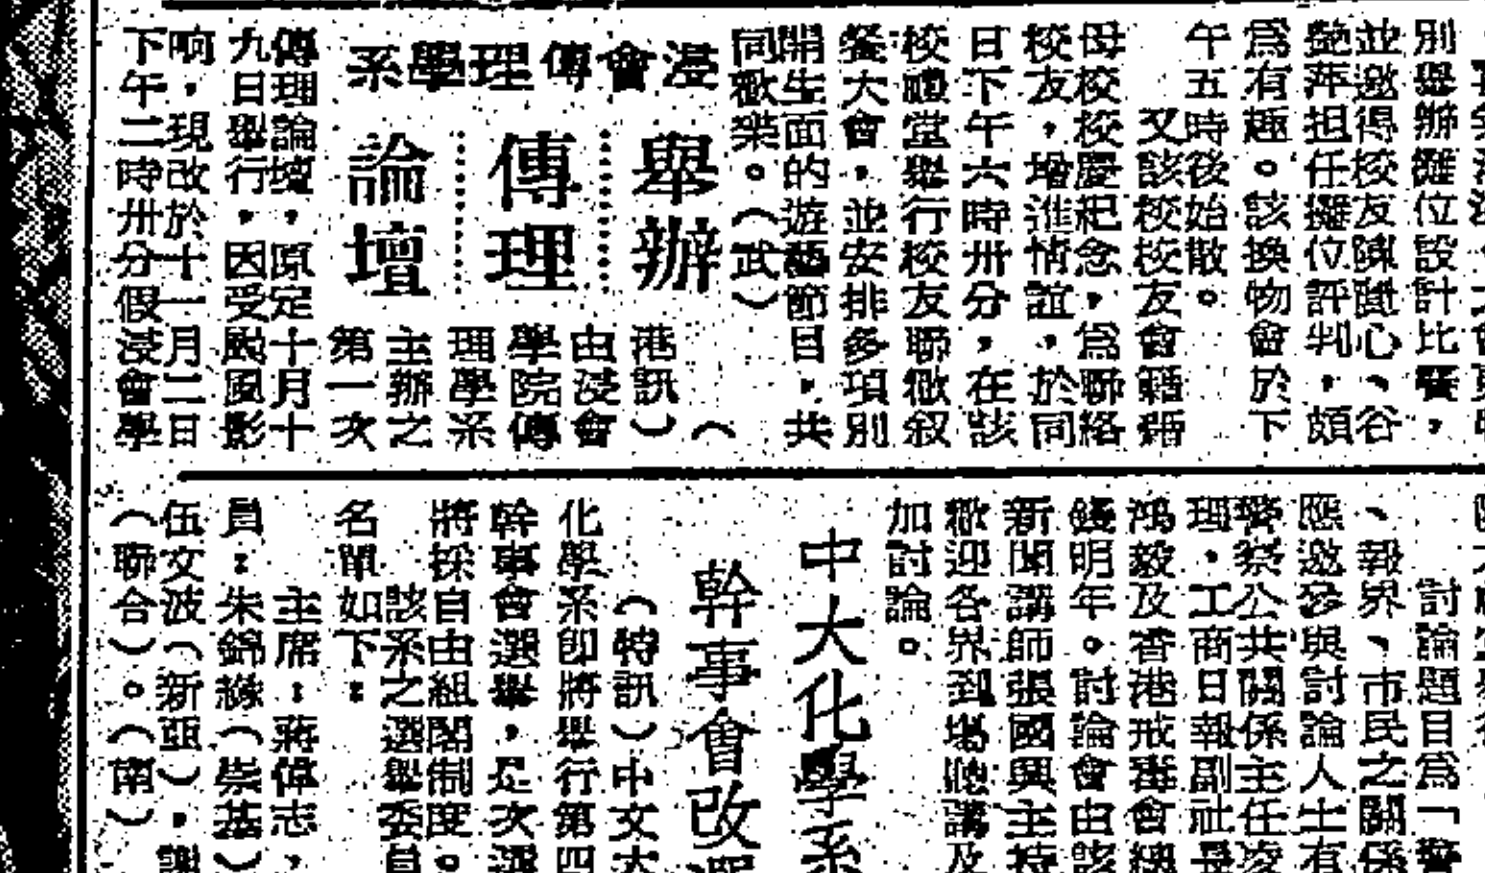 別舉辦攤位設計比賽，
並邀得校友陳心、谷
艷萍担任攤位評判，頗
為有趣。該換物會於下
午五時後始散。
又該校校友會
母校校慶紀念，為聯絡
校友，增進情誼，於同
日下午六時卅分，在該
校禮堂舉行校友聯歡叙
餐大會，並安排多項別
開生面的遊藝節目，共
同歡樂。（武）
浸會傳理學系
舉辦
傳理
論壇
（
港訊）
由浸會
學院傳
理學系
主辦之
第一次
傳理論壇，原定十月十
九日舉行，因受颱風影
响，現改於十一月二日
下午二時卅分假浸會學
討論題目為「警
、報界、市民之關係
應邀參與討論人士有
警察公共關係主任凌
理，工商日報副社長
鴻毅及香港戒毒會總
錢明年。討論會由該
新聞講師張國興主持
歡迎各界到場聽講及
加討論。
中大化學系
幹事會改選
（特訊）中文大
化學系即將舉行第四
幹事會選舉，是次選
將採自由組閣制度。
該系之選舉委員
名單如下：
主席：蔣偉志，
員：朱錦（崇基）
伍文波（新亞），謝
（聯合）。（南）